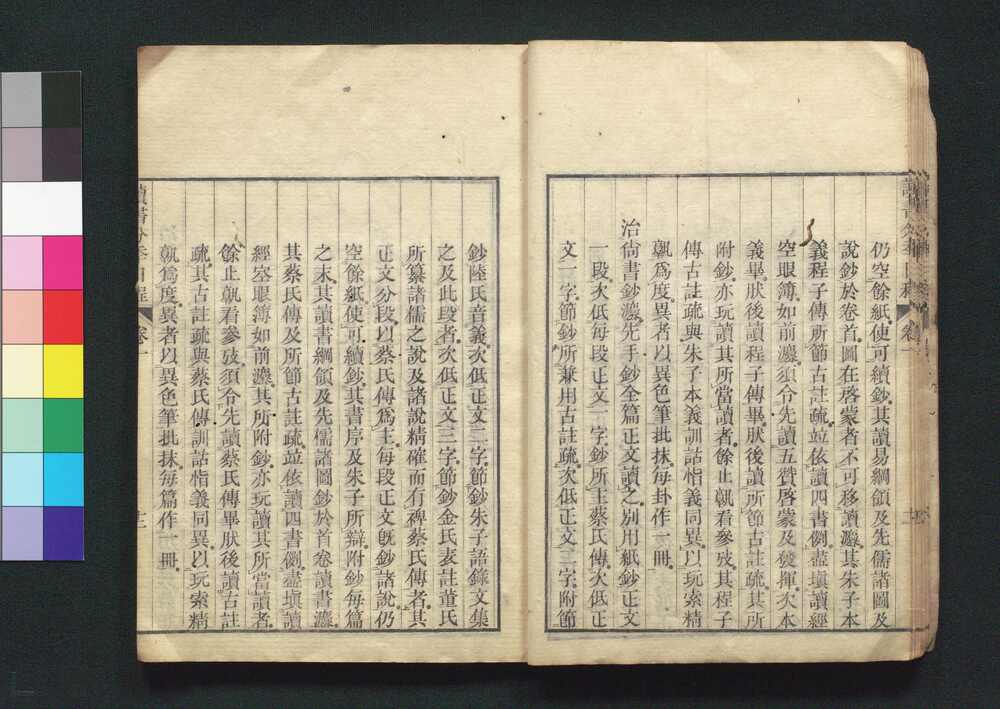 仍空餘紙使可續鈔其讀易綱領及先儒諸圖及
說鈔於卷首圖在啓蒙者不可移讀灋其朱子本
義程子傳所節古註疏竝依讀四書例盡塡讀經
空眼簿如前灋須令先讀五贊啓蒙及發揮次本
義畢肰後讀程子傳畢肰後讀所節古註疏其所
附鈔亦玩讀其所當讀者餘止孰看參攷其程子
傳古註疏與朱子本義訓詁恉義同異以玩索精
孰爲度異者以異色筆批抹每卦作一冊
治尙書鈔灋先手鈔全篇正文讀之別用紙鈔正文
一段次低每段正文一字鈔所主蔡氏傳次低正
文一字節鈔所兼用古註疏次低正文二字附節
鈔陸氏音義次低正文二字節鈔朱子語錄文集
之及此段者次低正文三字節鈔金氏表註董氏
所纂諸儒之說及諸說精確而有裨蔡氏傳者其
正文分段以蔡氏傳爲主每段正文旣鈔諸說仍
空餘紙使可續鈔其書序及朱子所辯附鈔每篇
之末其讀書綱領及先儒諸圖鈔於首卷讀書灋
其蔡氏傳及所節古註疏竝依讀四書例盡塡讀
經空眼簿如前灋其所附鈔亦玩讀其所當讀者
餘止孰看參攷須令先讀蔡氏傳畢肰後讀古註
疏其古註疏與蔡氏傳訓詁恉義同異以玩索精
孰爲度異者以異色筆批抹每篇作一冊
讀書分年日程
卷一